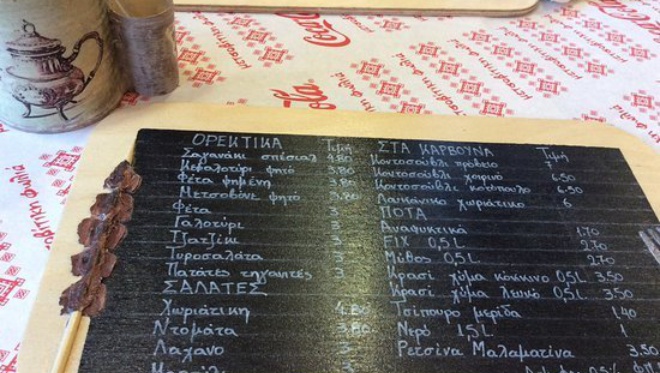 ΟΡΕΚΤΙΚΑ Τιμή
Σαγανάκι σπέσιαλ 4.80
Κεφαλοτύρι ψητό 3.80
Φέτα ψημένη 3.80
Μετσοβόνε ψητό 3.80
Φέτα 3
Γαλοτύρι 3
Τζατζίκι 3
Τυροσαλάτα 3
Πατάτες τηγανιτές 3
ΣΑΛΑΤΕΣ
Χωριάτικη 4.80
Ντομάτα 3.80
Λάχανο 3
ΣΤΑ ΚΑΡΒΟΥΝΑ Τιμή
Κοντοσούβλι πρόβειο 7
Κοντοσούβλι χοιρινό 6.50
Κοντοσούβλι κοτόπουλο 6.50
Λουκάνικο χωριάτικο 6
ΠΟΤΑ
Αναψυκτικά 1.70
FIX 0,5L 2.70
Μύθος 0,5L 2.70
Κρασί χύμα κόκκινο 0,5L 3.50
Κρασί χύμα λευκό 0,5L 3.50
Τσίπουρο μερίδα 1.40
Νερό 1,5L 1
Ρετσίνα Μαλαματίνα 3.50
Coca-Cola